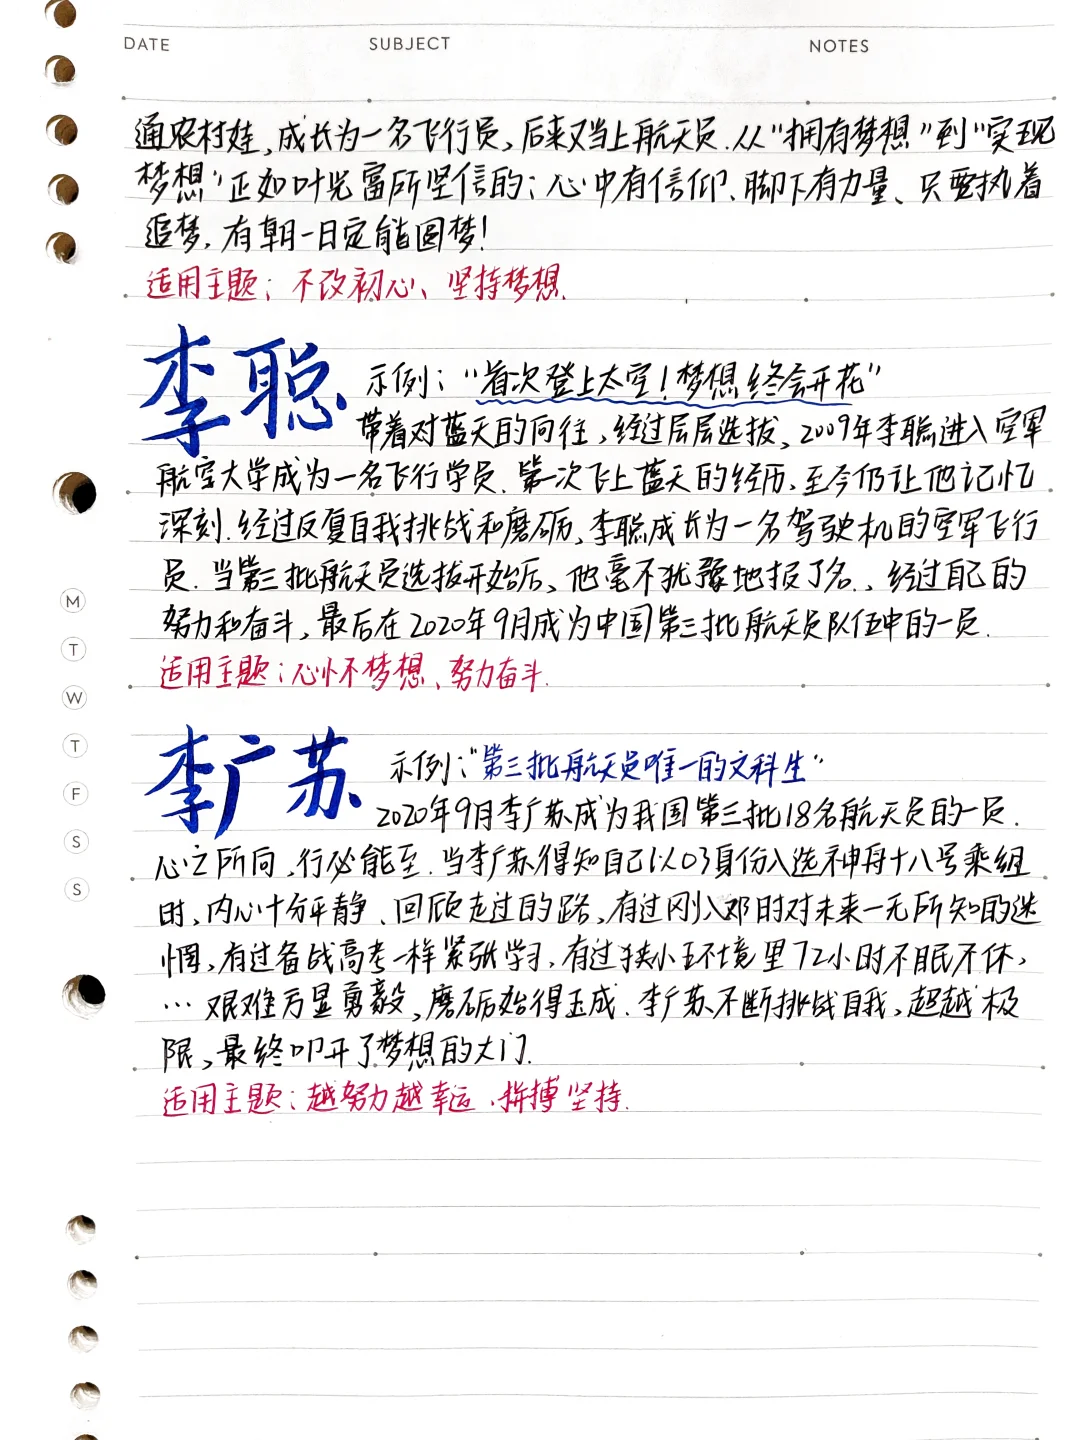 DATE SUBJECT NOTES
通农村娃,成长为一名飞行员,后来又当上航天员.从“拥有梦想”到“实现
梦想”正如叶光富所坚信的:心中有信仰、脚下有力量、只要执着
追梦,有朝一日定能圆梦!
适用主题:不改初心、坚持梦想.
李聪.
示例:“首次登上太空!梦想终会开花”
带着对蓝天的向往,经过层层选拔,2009年李聪进入空军
航空大学成为一名飞行学员.第一次飞上蓝天的经历,至今仍让他记忆
深刻.经过反复自我挑战和磨砺,李聪成长为一名驾驶机的空军飞行
员.当第三批航天员选拔开始后,他毫不犹豫地报了名.,经过自己的
努力和奋斗,最后在2020年9月成为中国第三批航天员队伍中的一员.
适用主题:心怀梦想、努力奋斗.
李广苏.
示例:“第三批航天员唯一的文科生”
2020年9月李广苏成为我国第三批18名航天员的一员.
心之所向,行必能至.当李广苏得知自己以03身份入选神舟十八号乘组
时,内心十分平静、回顾走过的路,有过刚入邓时对未来一无所知的迷
惘,有过备战高考一样紧张学习,有过狭小环境里72小时不眠不休,
…艰难方显勇毅,磨砺始得玉成.李广苏不断挑战自我,超越极
限,最终叩开了梦想的大门.
适用主题:越努力越幸运、拼搏坚持.
M
T
W
T
F
S
S